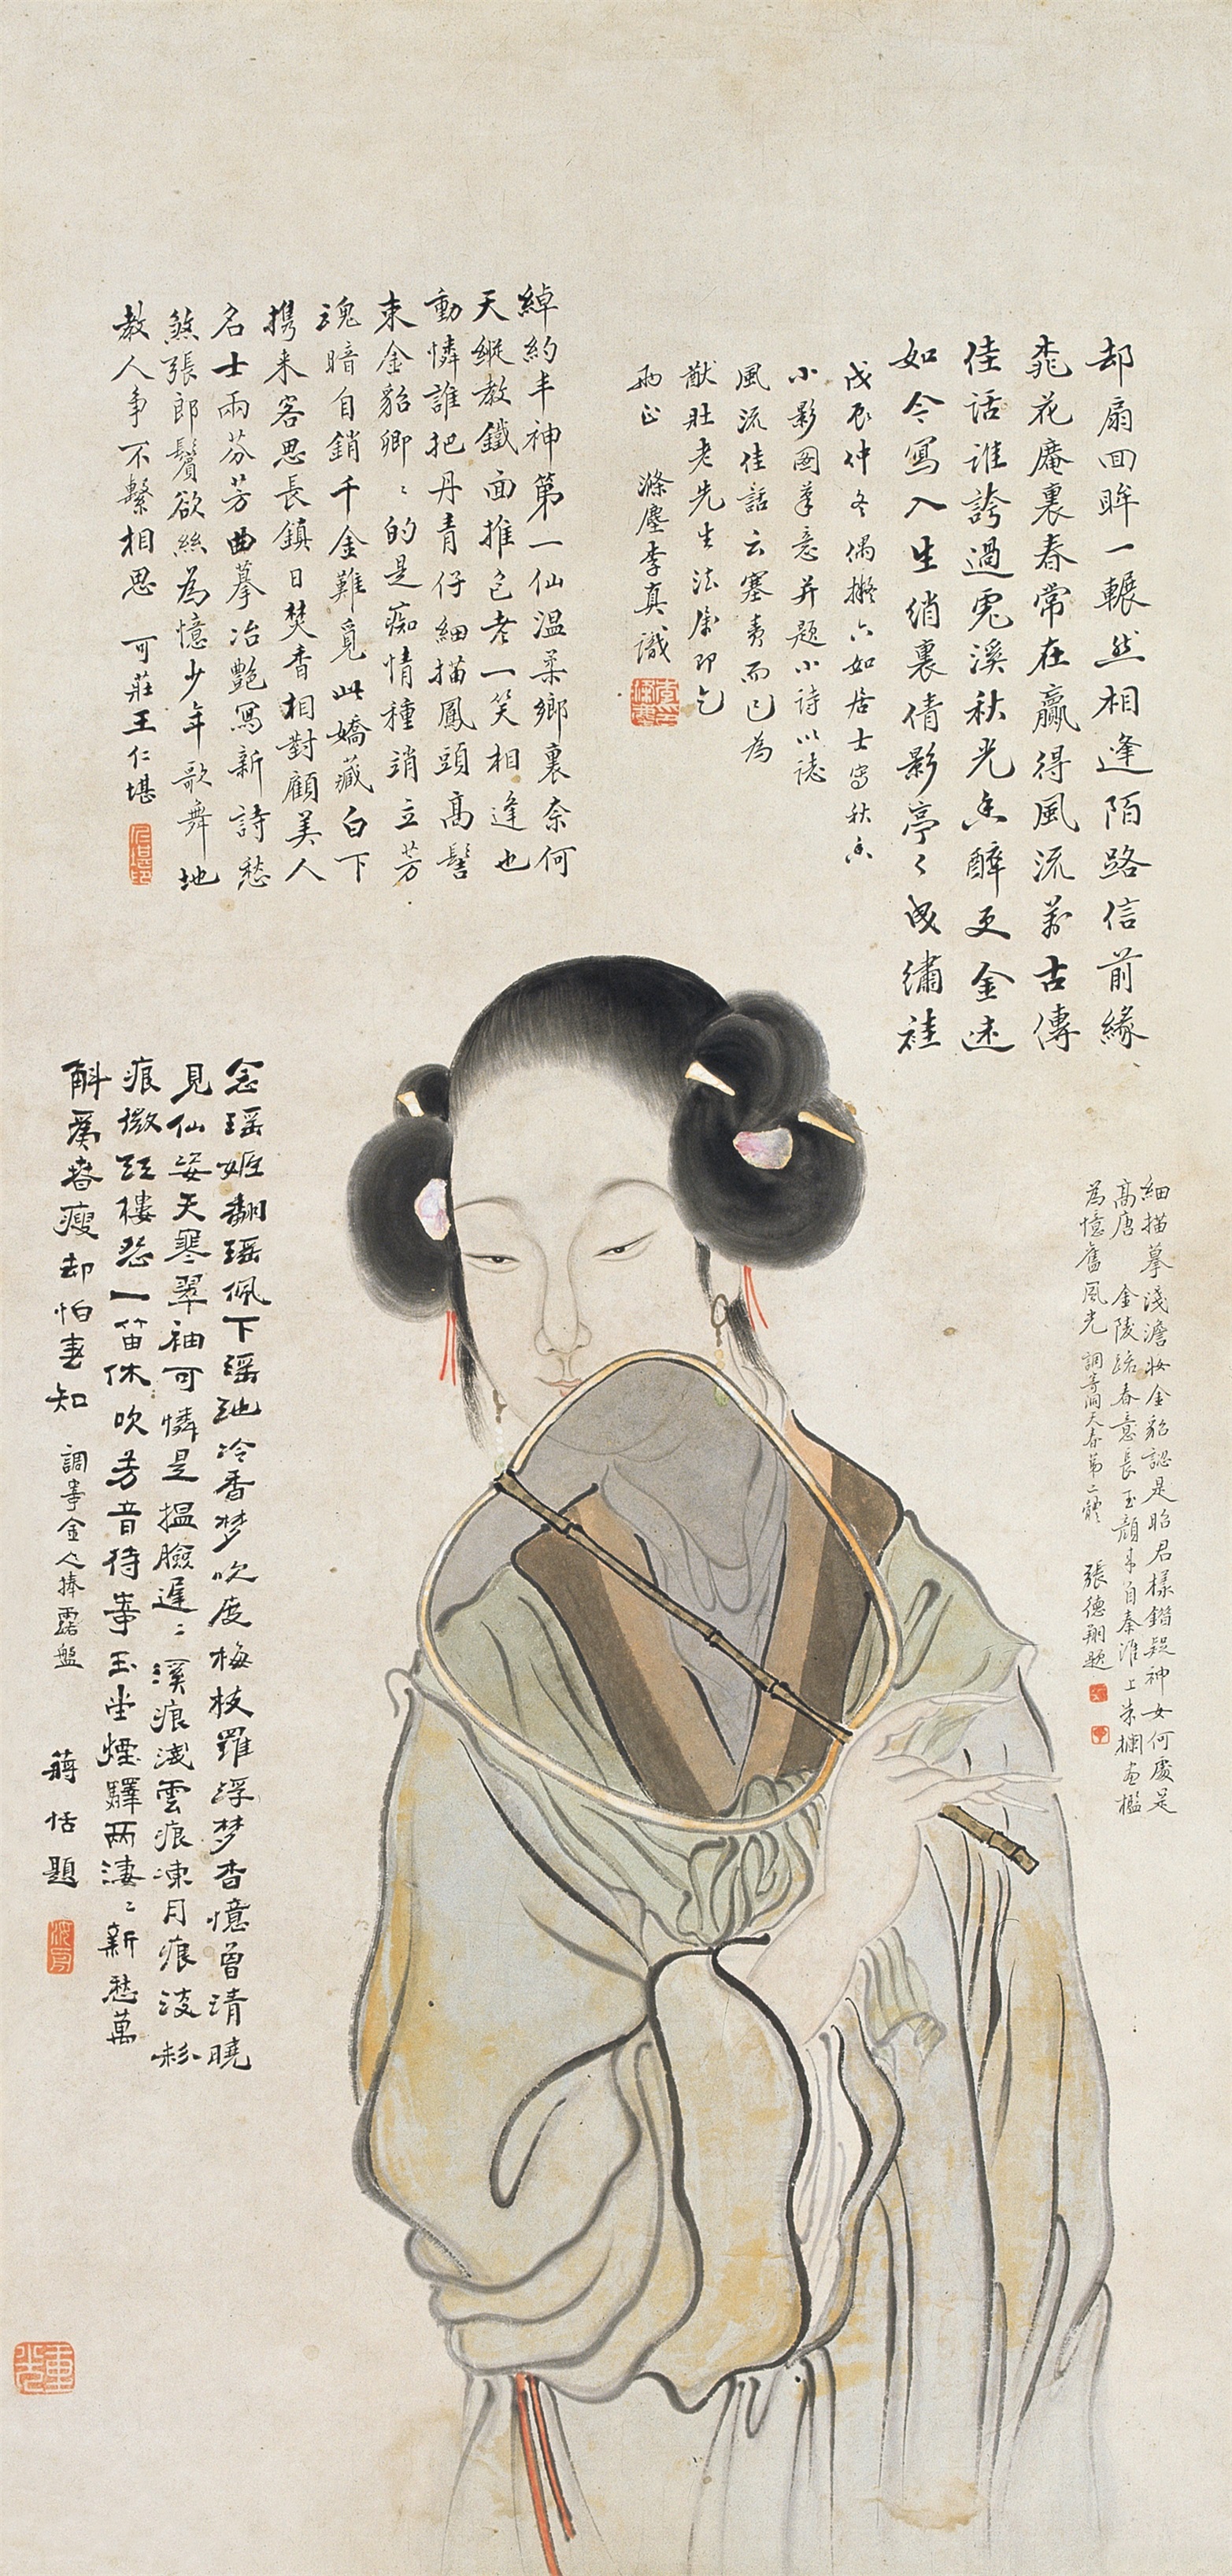 却扇回眸一輾然相逢陌路信前緣
桃花庵裏春常在贏得風流萬古傳
佳話誰誇過兔溪秋光香醉更金迷
如今寫入生綃裏倩影亭〻成繡袿
戊辰仲冬偶擬六如居士寫秋香
小影圖筆意并題小詩以誌
風流佳話云塞責而已為
猷壯老先生法屬即乞
兩正 滌塵李真識
綽約丰神第一仙溫柔鄉裏奈何
天縱教鐵面推包老一笑相逢也
動憐誰把丹青仔細描鳳頭高髻
束金貂卿〻的是痴情種誚立芳
魂暗自銷千金難覓此嬌藏白下
携来客思長鎮日焚香相對顧美人
名士兩芬芳曲摹冶艷寫新詩愁
煞張郎鬢欲絲為憶少年歌舞地
教人爭不繫相思 可莊王仁堪
細描摹淺澹妝金貂認是昭君樣錯疑神女何處是
高唐 金陵路春意長玉顏来自秦淮上朱欄画檻
為憶舊風光 調寄洞天春第二體 張德翔題
念瑶姬翻瑶佩下瑶池冷香夢吹度梅枝羅浮夢杳憶曾清曉
見仙姿天寒翠袖可憐是搵臉遲〻溪痕淺雲痕凍月痕淡粉
痕微江樓怨一笛休吹芳音待寄玉堂煙驛兩淒〻新愁萬
斛為春瘦却怕春知 調寄金人捧露盤
蔣恬題